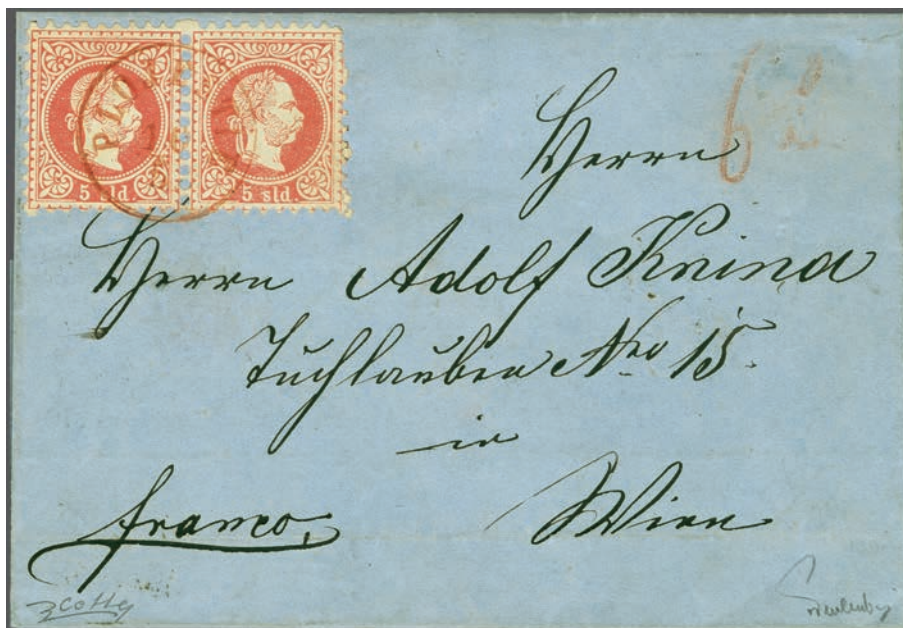 5 sld.
5 sld.
6
Herrn
Herrn Adolf Knina
Tuchlauben Nro 15.
in
franco, Wien